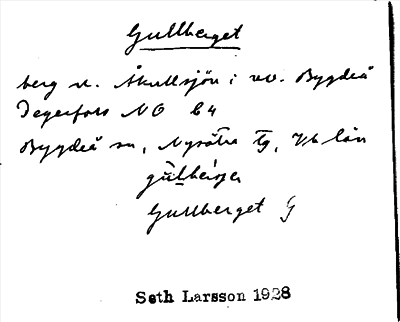 Gullberget
berg n. Åkullsjön i nv. Bygdeå
Degerfors NO C4
Bygdeå sn, Nysätra tg, Vb län
Gullberget G
Seth Larsson 1928